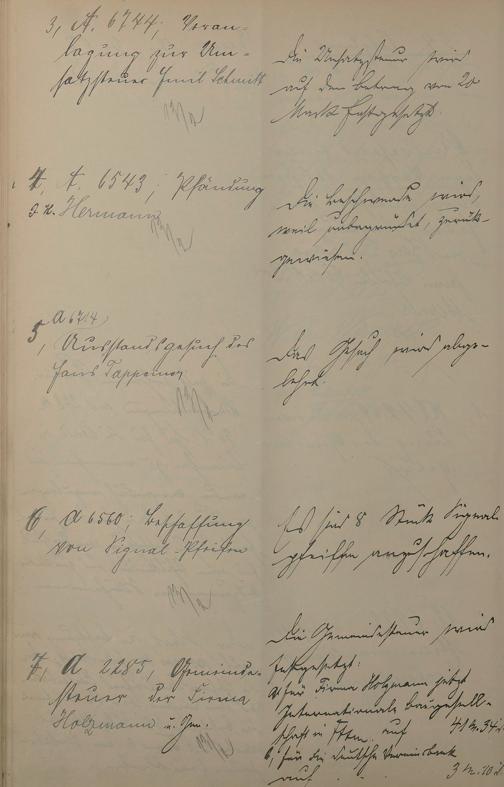 3, A. 6744; Veran-
lagung zur Um-
satzsteuer Emil Schmitt
Die Umsatzsteuer wird
auf den Betrag von 20
Mark festgesetzt.
4, A. 6543; Pfändung
J. K. Hermann
Die Beschwerde wird,
weil unbegründet, zurück-
gewiesen.
5, A 6714
Ausstandsgesuch des
Hans Tappeiner
Das Gesuch wird abge-
lehnt.
6, A 6560; Beschaffung
von Signal-Pfeifen
Es sind 8 Stück Signal-
pfeifen anzuschaffen.
7, A 2285, Gemeinde-
steuer der Firma
Holzmann u. Gen.
Die Gemeindesteuer wird
festgesetzt:
a, für Firma Holzmann jetzt
Internationale Baugesell-
schaft in auf 41 M. 34
b, für die deutsche Vereinsbank
auf 3 M. 10